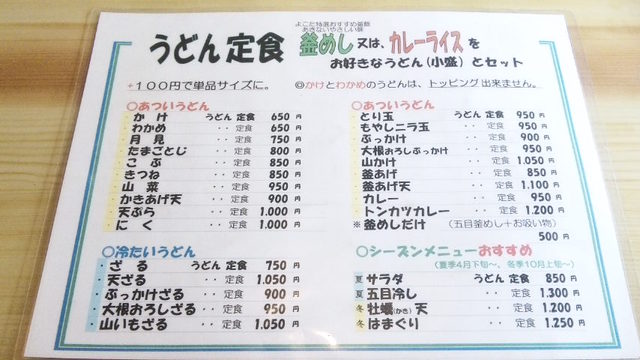 よこた特選おすすめ釜飯
あきないやさしい昼
うどん定食 釜めし 又は、カレーライスを
お好きなうどん(小盛)とセット
+100円で単品サイズに。
◎かけとわかめのうどんは、トッピング出来ません。
○あついうどん
かけ うどん 定食 650 円
わかめ ‥ 定食 650 円
月見 ‥ 定食 750 円
たまごとじ ‥ 定食 800 円
こぶ ‥ 定食 850 円
きつね ‥ 定食 850 円
山菜 ‥ 定食 950 円
かきあげ天 ‥ 定食 900 円
天ぷら ‥ 定食 1.000 円
にく ‥ 定食 1.000 円
○冷たいうどん
ざる うどん 定食 750 円
天ざる ‥ 定食 1.050 円
ぶっかけざる ‥ 定食 900 円
大根おろしざる ‥ 定食 950 円
山いもざる ‥ 定食 1.050 円
○あついうどん
とり玉 うどん 定食 950 円
もやしニラ玉 ‥ 定食 950 円
ぶっかけ ‥ 定食 900 円
大根おろしぶっかけ ‥ 定食 950 円
山かけ ‥ 定食 1.050 円
釜あげ ‥ 定食 850 円
釜あげ天 ‥ 定食 1.100 円
カレー ‥ 定食 950 円
トンカツカレー ‥ 定食 1.200 円
※ 釜めしだけ (五目釜めし+お吸い物)
500 円
○シーズンメニューおすすめ
(夏季4月下旬〜、冬季10月上旬〜)
夏 サラダ うどん 定食 850 円
夏 五目冷し ‥ 定食 1.300 円
冬 牡蠣(かき)天 ‥ 定食 1.200 円
冬 はまぐり ‥ 定食 1.250 円